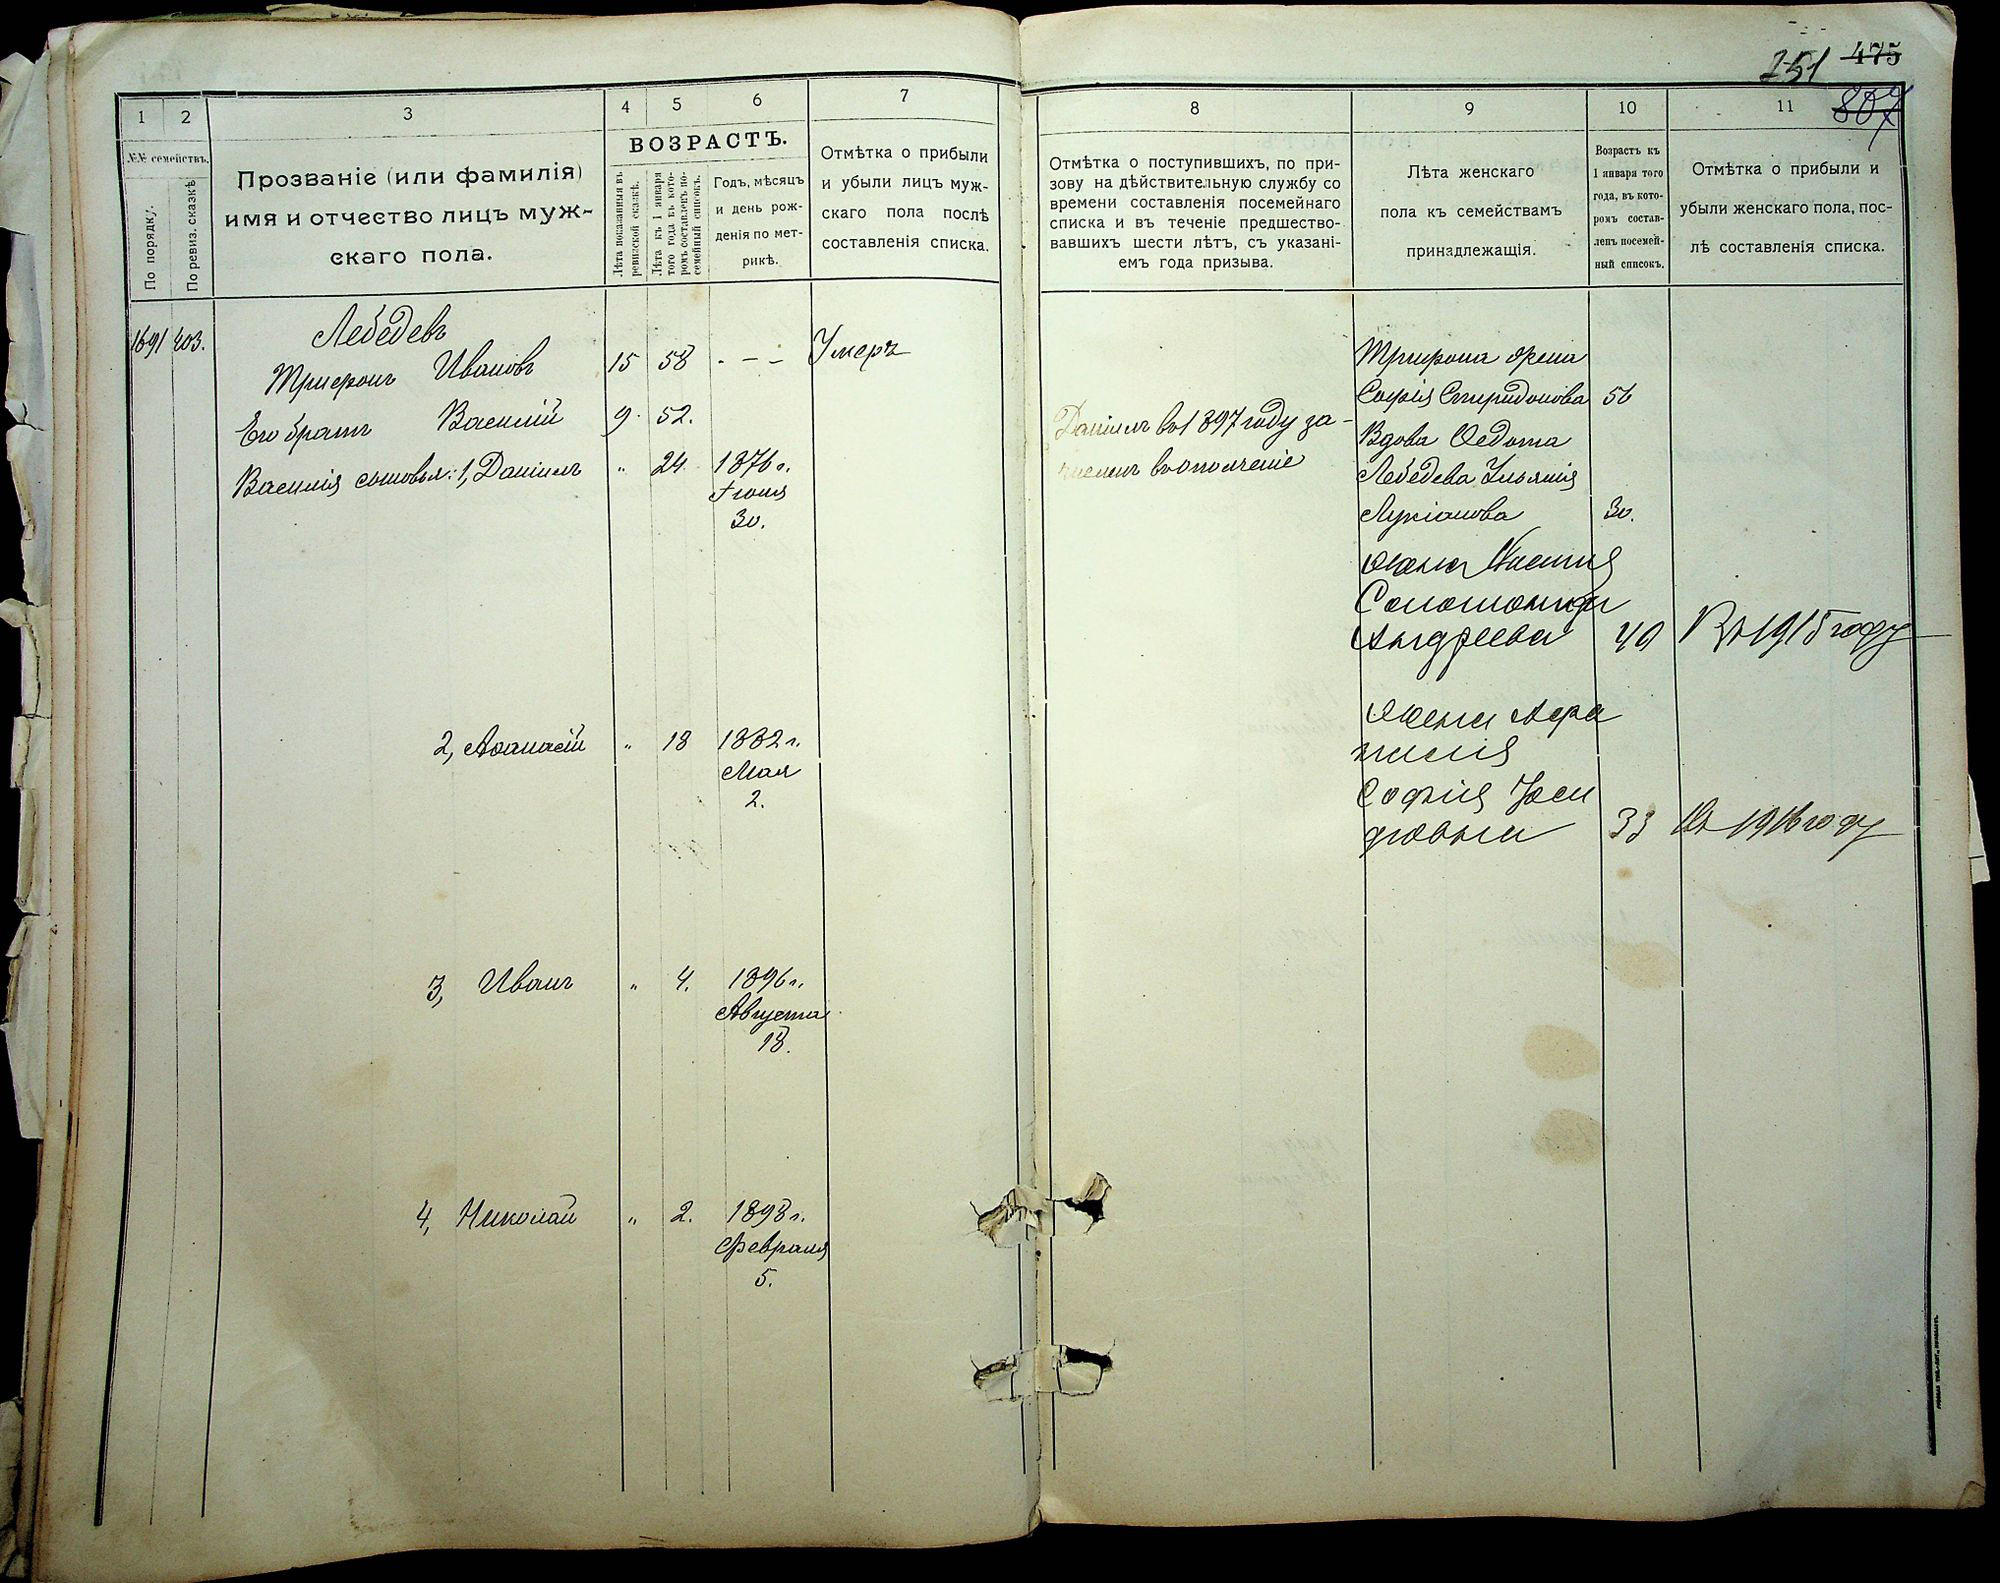 251 475
807
1 2 3 4 5 6 7
№№ семействъ.
По порядку.
По ревиз. сказкѣ
Прозваніе (или фамилія)
имя и отчество лицъ муж-
скаго пола.
ВОЗРАСТЪ.
Лѣта показанныя въ
ревизской сказкѣ.
Лѣта къ 1 января
того года въ кото-
ромъ составленъ по-
семейный списокъ.
Годъ, мѣсяцъ
и день рож-
денія по мет-
рикѣ.
Отмѣтка о прибыли
и убыли лицъ муж-
скаго пола послѣ
составленія списка.
1691 203. Лебедевъ
Трифонъ Ивановъ 15 58 - - - Умеръ
Его братъ Василій 9. 52.
Василія сыновья: 1, Даніилъ " 24 1876 г.
Іюня
30.
2, Аѳанасій " 18 1882 г.
Мая
2.
3, Иванъ " 4. 1896 г.
Августа
18.
4, Николай " 2. 1898 г.
Февраля
5.
8 9 10 11
Отмѣтка о поступившихъ, по при-
зову на дѣйствительную службу со
времени составленія посемейнаго
списка и въ теченіе предшество-
вавшихъ шести лѣтъ, съ указані-
емъ года призыва.
Лѣта женскаго
пола къ семействамъ
принадлежащія.
Возрастъ къ
1 января того
года, въ кото-
ромъ состав-
ленъ посемей-
ный списокъ.
Отмѣтка о прибыли и
убыли женскаго пола, пос-
лѣ составленія списка.
Даніилъ въ 1897 году за-
численъ въ ополченіе
Трифона жена
Софія Спиридонова 56
Вдова Ѳедота
Лебедева Ульянія
Лукіанова 30.
Жена
Соломонида
Андреева 40 Въ 1915 году
Жена Афа
насія
София
33 Въ 1916 году